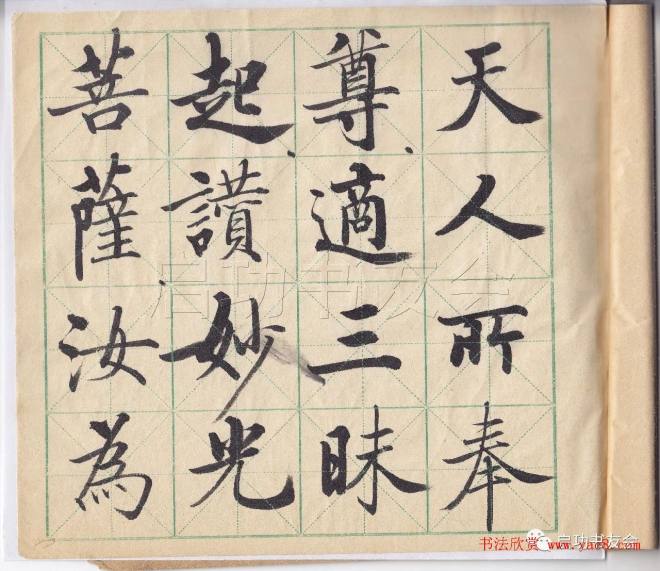 天人所奉
尊適三昧
起讃妙光
菩薩汝為
启功书友会
书法欣赏 www.yac8.com
启功书友会